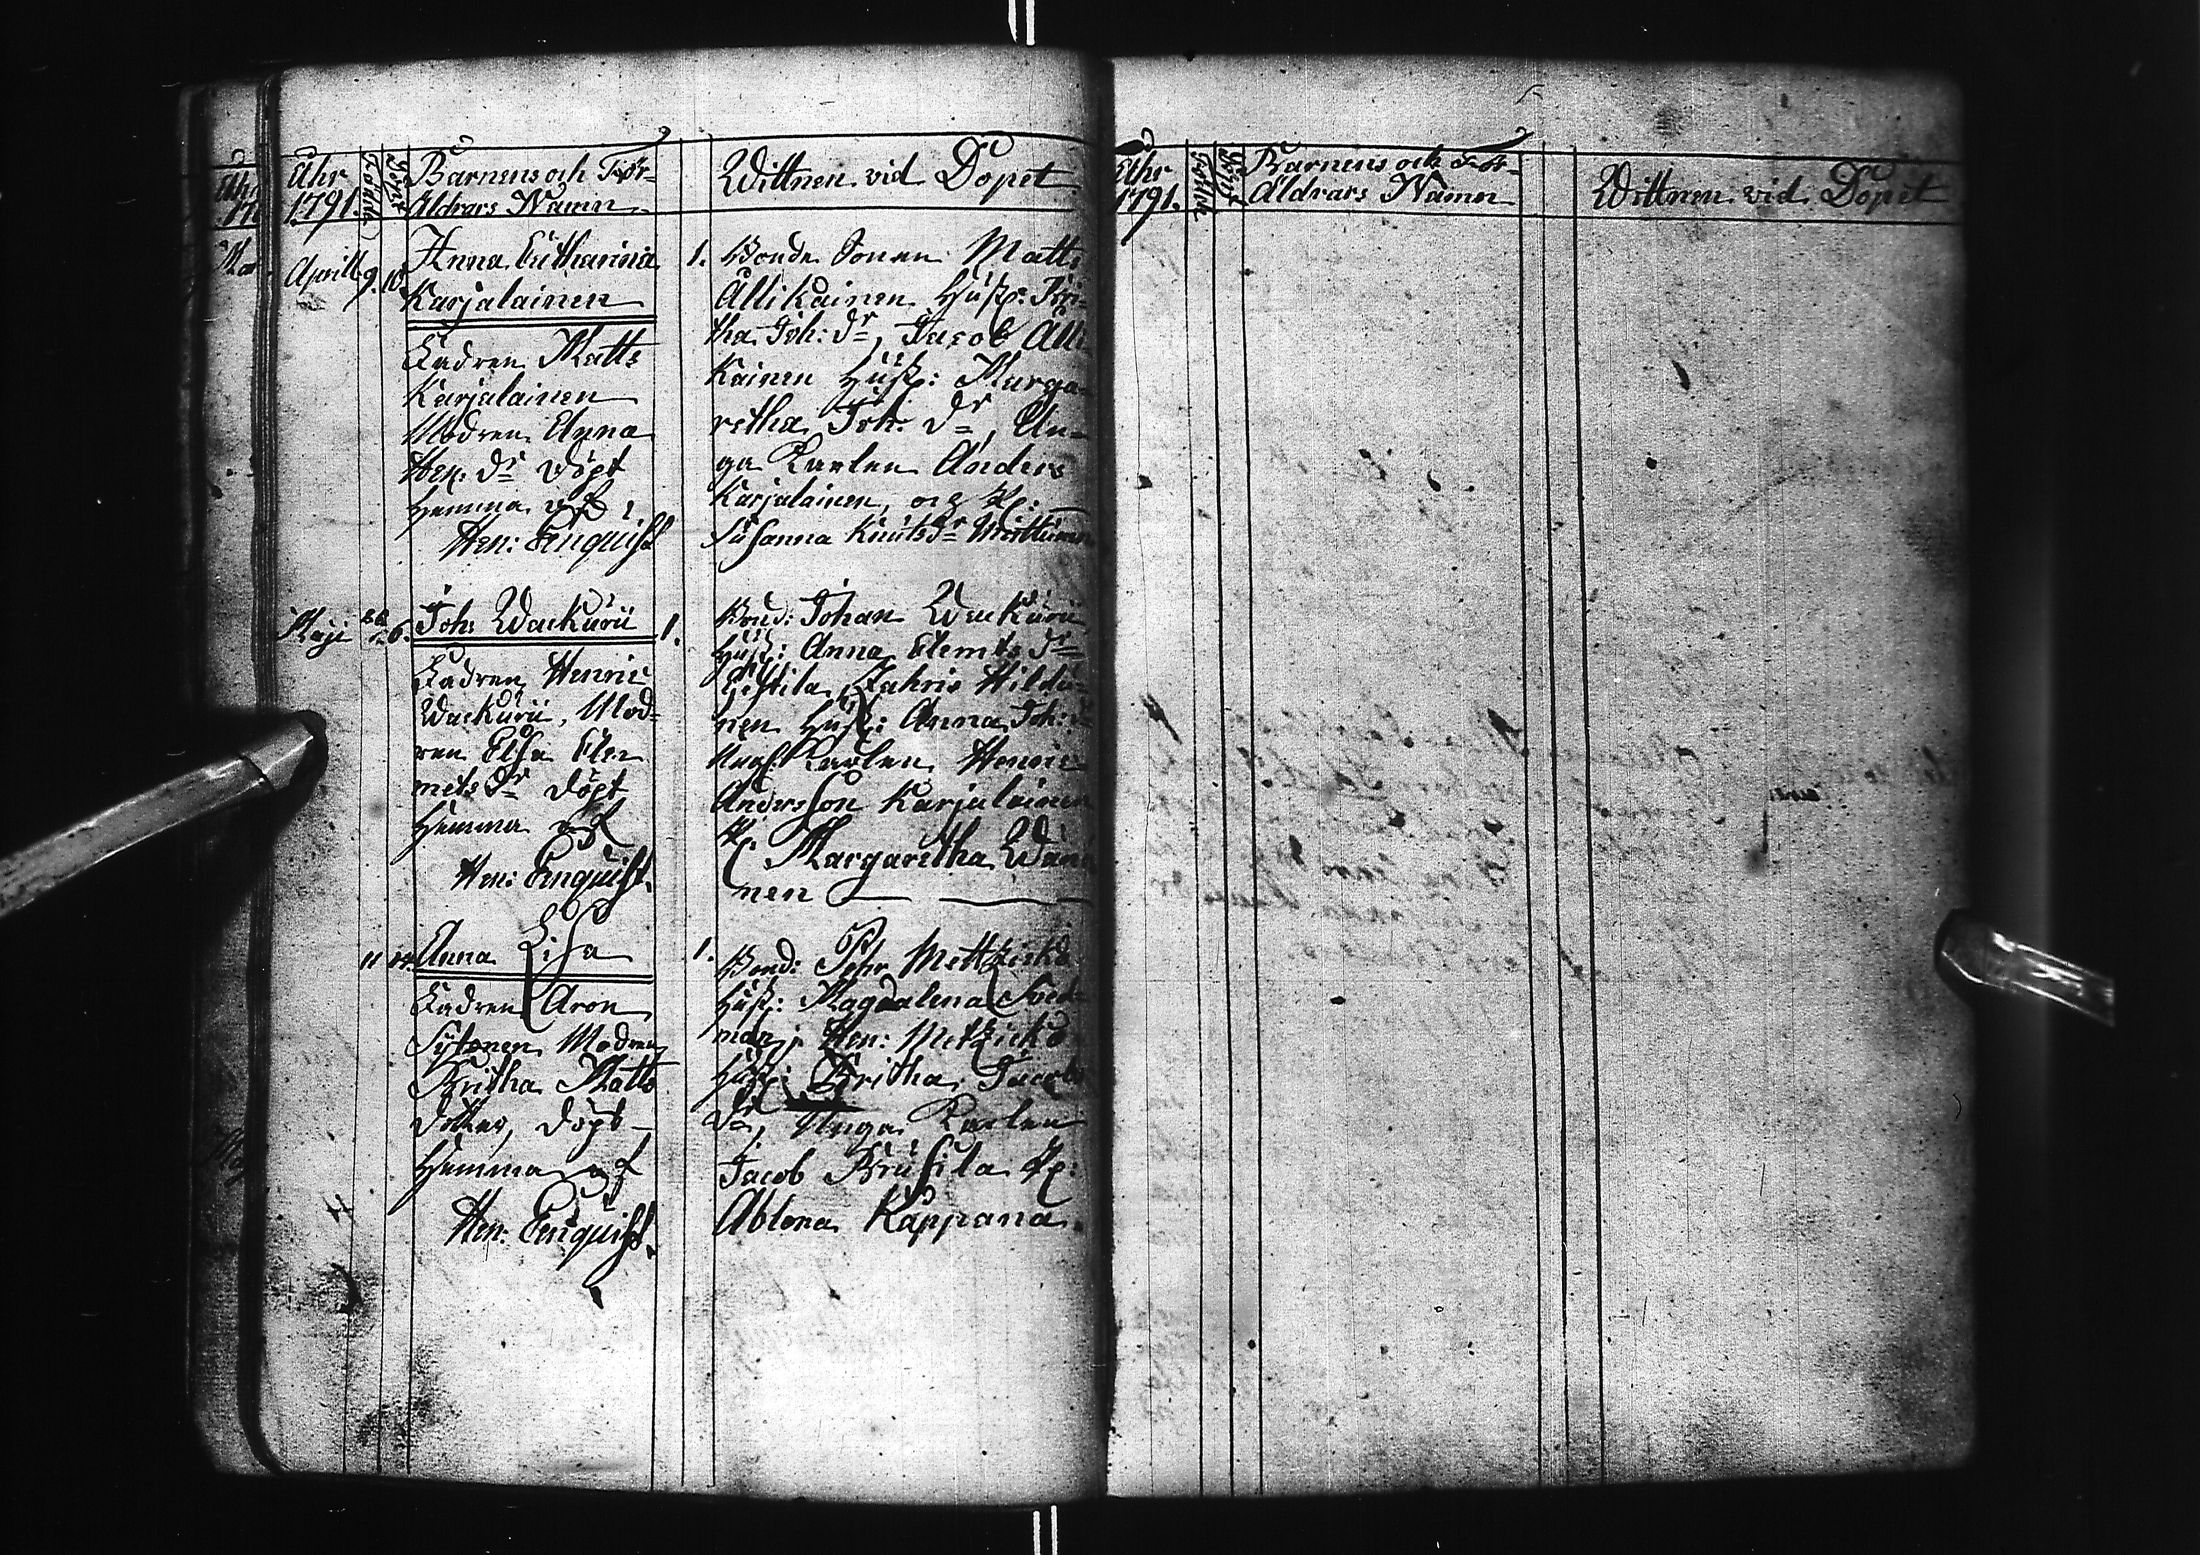 Åhr 1791.
Födde
Döpte
Barnens och För-
Äldrars Namn
Wittnen vid Döpet
Aprill 9. 10.
Anna Catharina
Karjalainen
Fadren Matts
Karjalainen
Modren Elena
Hen: dr Döpt
Hemma af
Hen: Enquist
1. Bonde Sonen Matts
Ållikainen Hust: Bri-
tha Joh: dr, Jacob Ålli
kainen Hust: Marga-
retha Joh: dr, Un-
ga Karlen Anders
Karjalainen, och P:
Susanna Knuts dr
Maji 6.
Joh: Wackurü
1.
Fadren Henric
Wackurü, Mod-
ren Elsa Cle-
mets dr Döpt
Hemma af
Hen: Enquist.
Bond: Johan Wackurü
Hust: Anna Clemts dr
Zakris Hildu-
nen Hust: Anna Joh: d
Ung Karlen Henric
Andersson Karjalainen
P: Margaretha
nen
11 14.
Anna Lisa
Fadren Aron
Sytonen Modren
Britha Matts
dotter, Döpt
Hemma af
Hen: Enquist.
1.
Bond: Pehr
Hust: Magdalena
man, Hen:
Hust: Britha Jacobs
dr, Unga Karlen
Jacob Brusila P:
Ablona Kappana.
Åhr 1791.
Födde
Döpte
Barnens och För-
Äldrars Namn
Wittnen vid Döpet